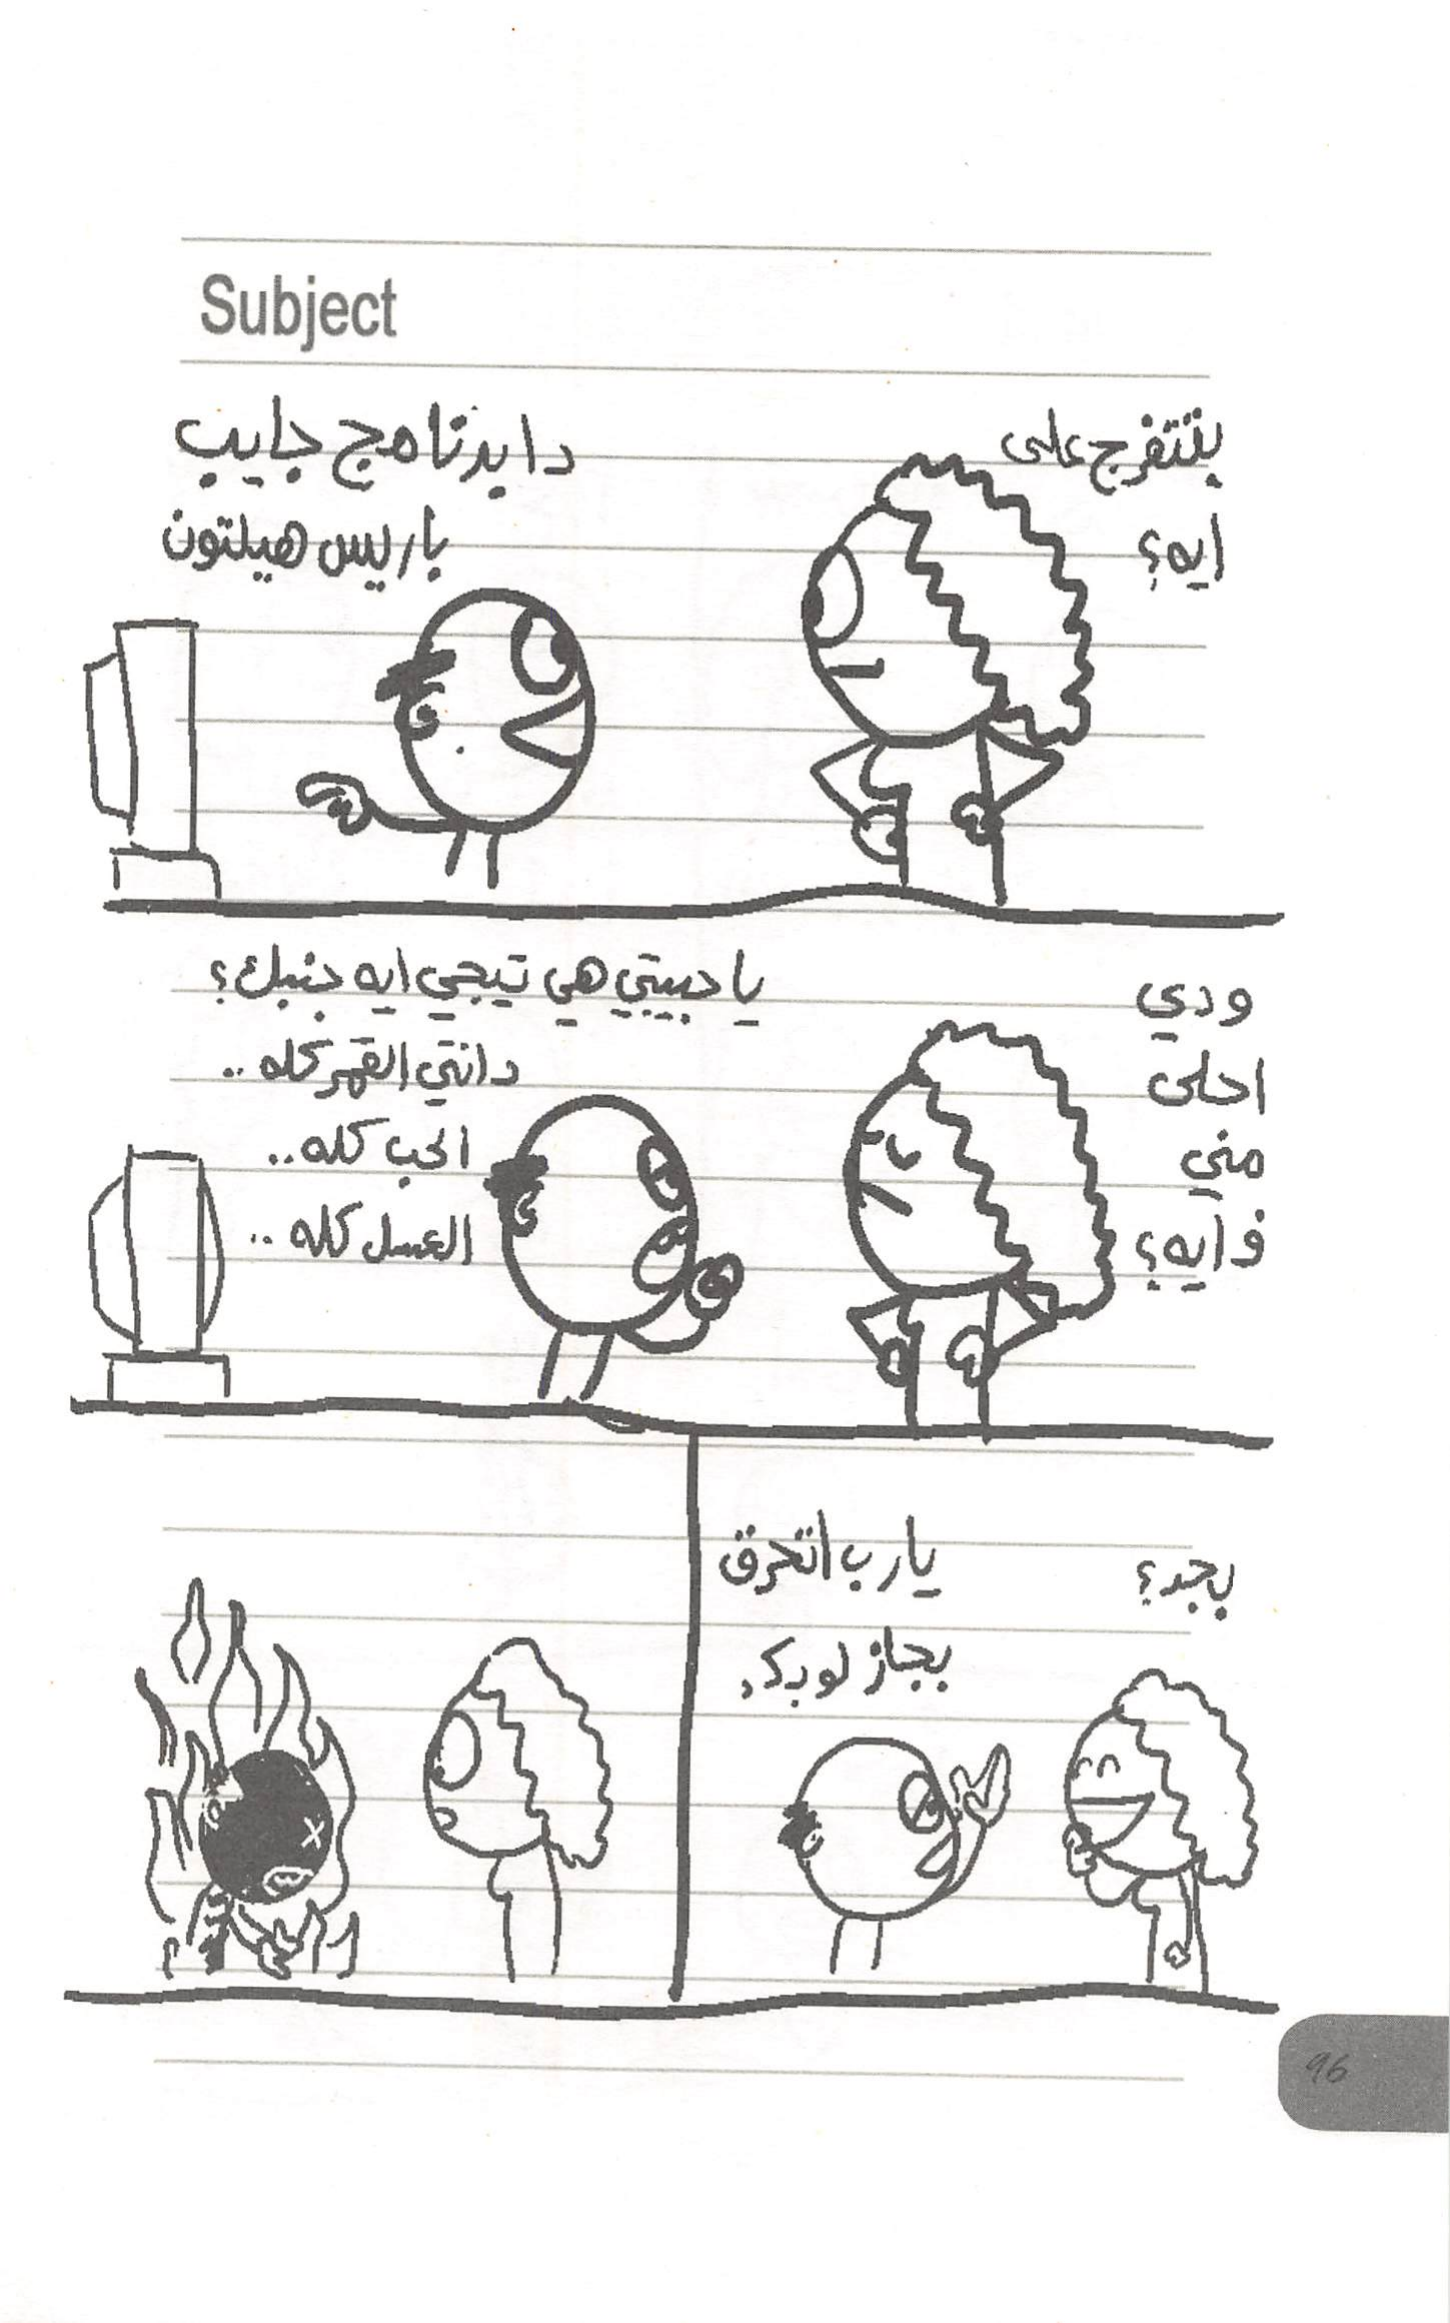 Subject
بتتفرج على
ايه؟
دا برنامج جايب
باريس هيلتون
ودي
احلى
مني
ف ايه؟
يا حبيبتي هي تيجي ايه جنبك؟
دانتي القمر كله ..
الحب كله ..
العسل كله ..
بجد؟
يارب اتحرق
بجاز لو بكد
96